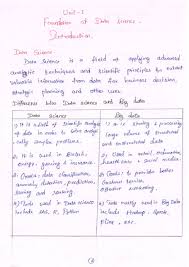 Unit-I
Foundation of Data Science.
Introduction.
Data Science:
Data Science is a field of applying advanced
analytic techniques and scientific principles to extract
valuable information from data for business decision,
strategic planning and other uses.
Difference b/w Data science and Big data
Data Science
1) It is a field of scientific analysis
of data in order to solve
complex problems.
2) It is used in Biotech,
energy, gaming & insurance.
3) Goals: data classification,
anomaly detection, prediction,
scoring and ranking.
4) Tools used in Data Science
include SAS, R, Python
Big data
1) It is storing & processing
large volume of structured
and unstructured data
2) Used in retail, education,
healthcare, social media.
3) Goals: to provide better
customer service,
effective marketing.
4) Tools mostly used in Big data
include Hadoop, Spark,
Flink, etc.